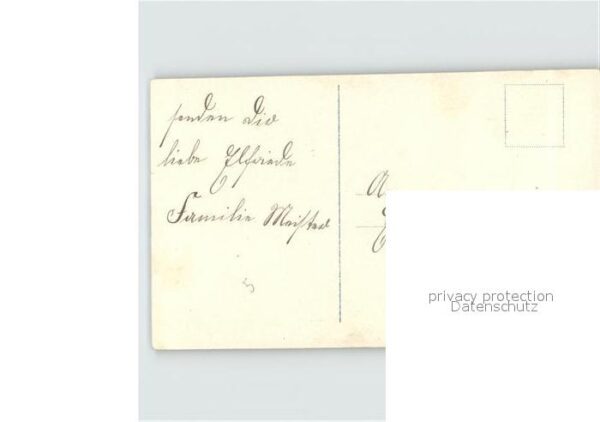 senden Dir
liebe Elfriede
Familie Meister
privacy protection
Datenschutz